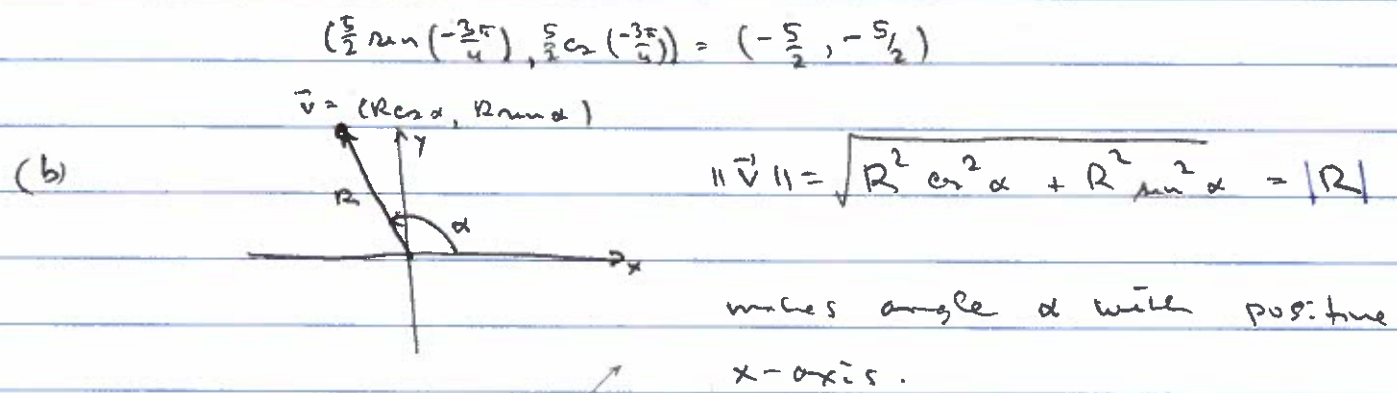 (5/2 sin (-3π/4), 5/2 cos (-3π/4)) = (-5/2, -5/2)
v⃗ = (R cos α, R sin α)
y
(b)
‖v⃗‖ = √(R² cos² α + R² sin² α) = |R|
R
α
x
makes angle α with positive
x-axis.